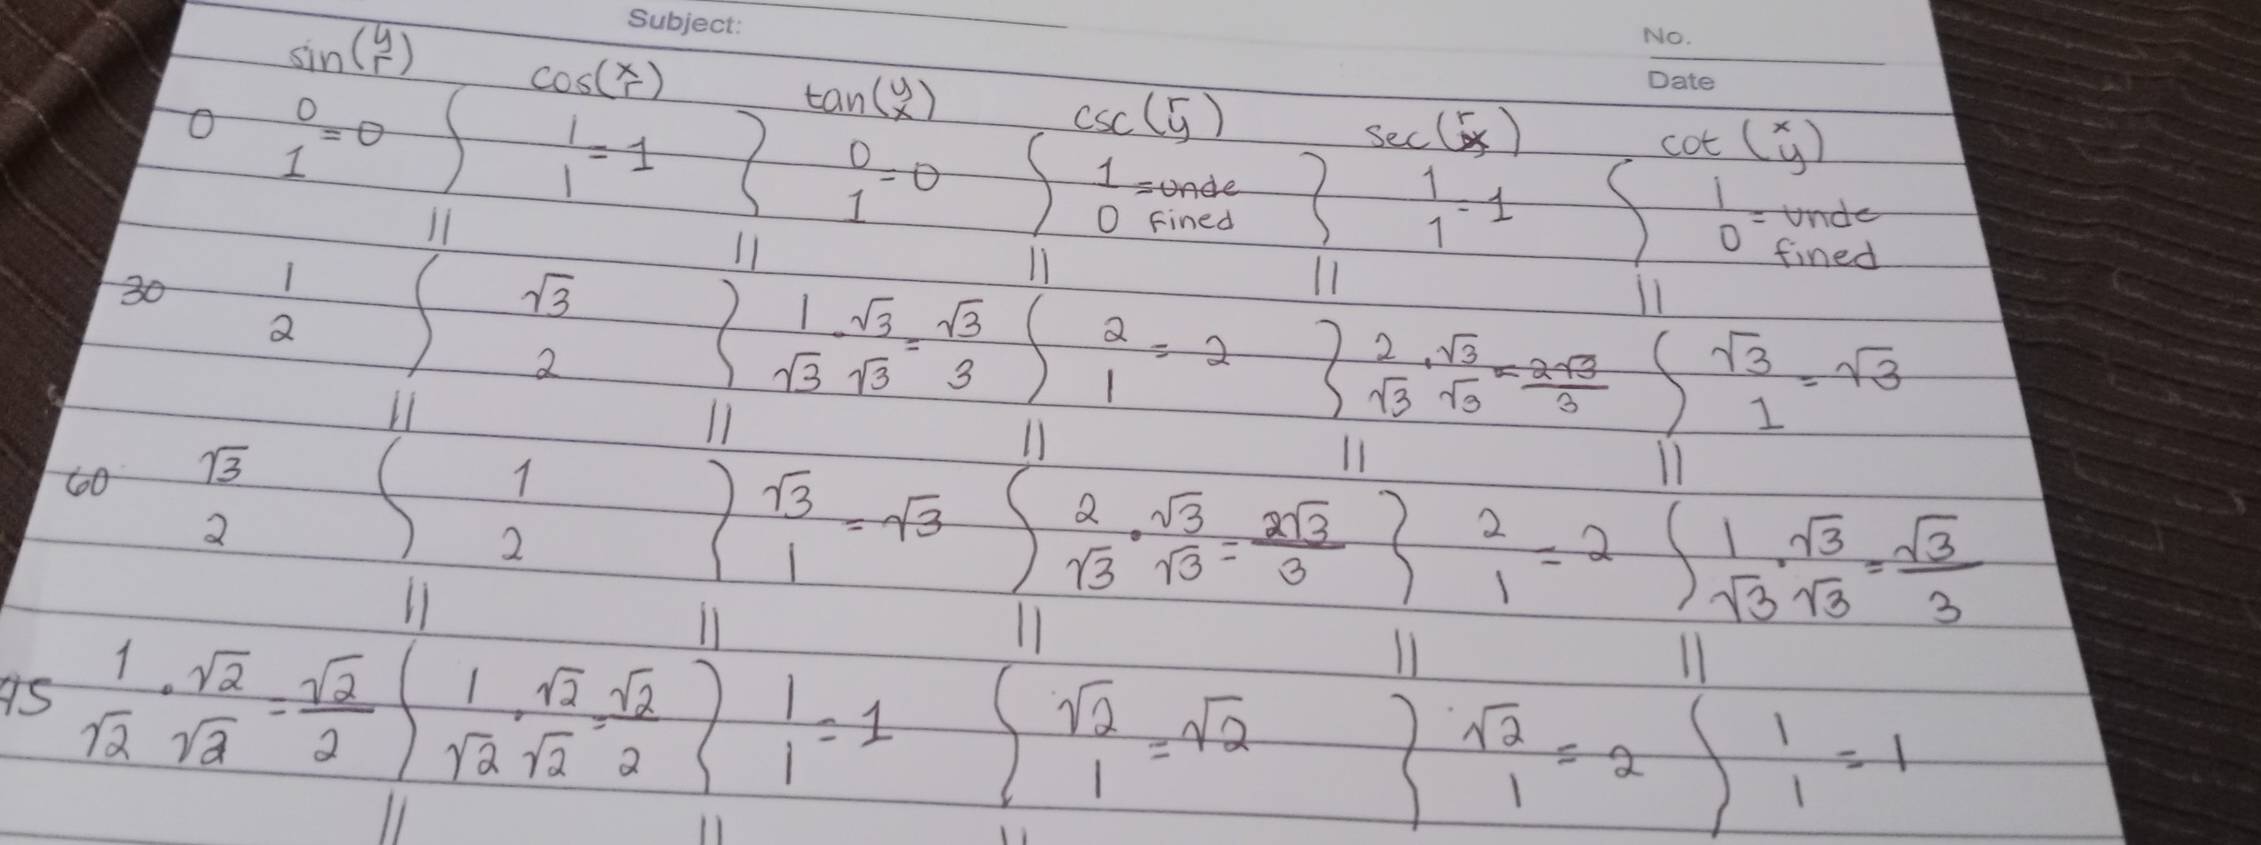 Subject:
No.
Date
sin(y/r) cos(x/r) tan(y/x) csc(r/y) sec(r/x) cot(x/y)
0 0/1 = 0 } 1/1 = 1 } 0/1 = 0 } 1/0 = undefined } 1/1 = 1 } 1/0 = undefined
|| || || || ||
30 1/2 } √3/2 } 1/√3 · √3/√3 = √3/3 } 2/1 = 2 } 2/√3 · √3/√3 = 2√3/3 } √3/1 = √3
|| || || || ||
60 √3/2 } 1/2 } √3/1 = √3 } 2/√3 · √3/√3 = 2√3/3 } 2/1 = 2 } 1/√3 · √3/√3 = √3/3
|| || || || ||
45 1/√2 · √2/√2 = √2/2 } 1/√2 · √2/√2 = √2/2 } 1/1 = 1 } √2/1 = √2 } √2/1 = 2 } 1/1 = 1
|| || ||